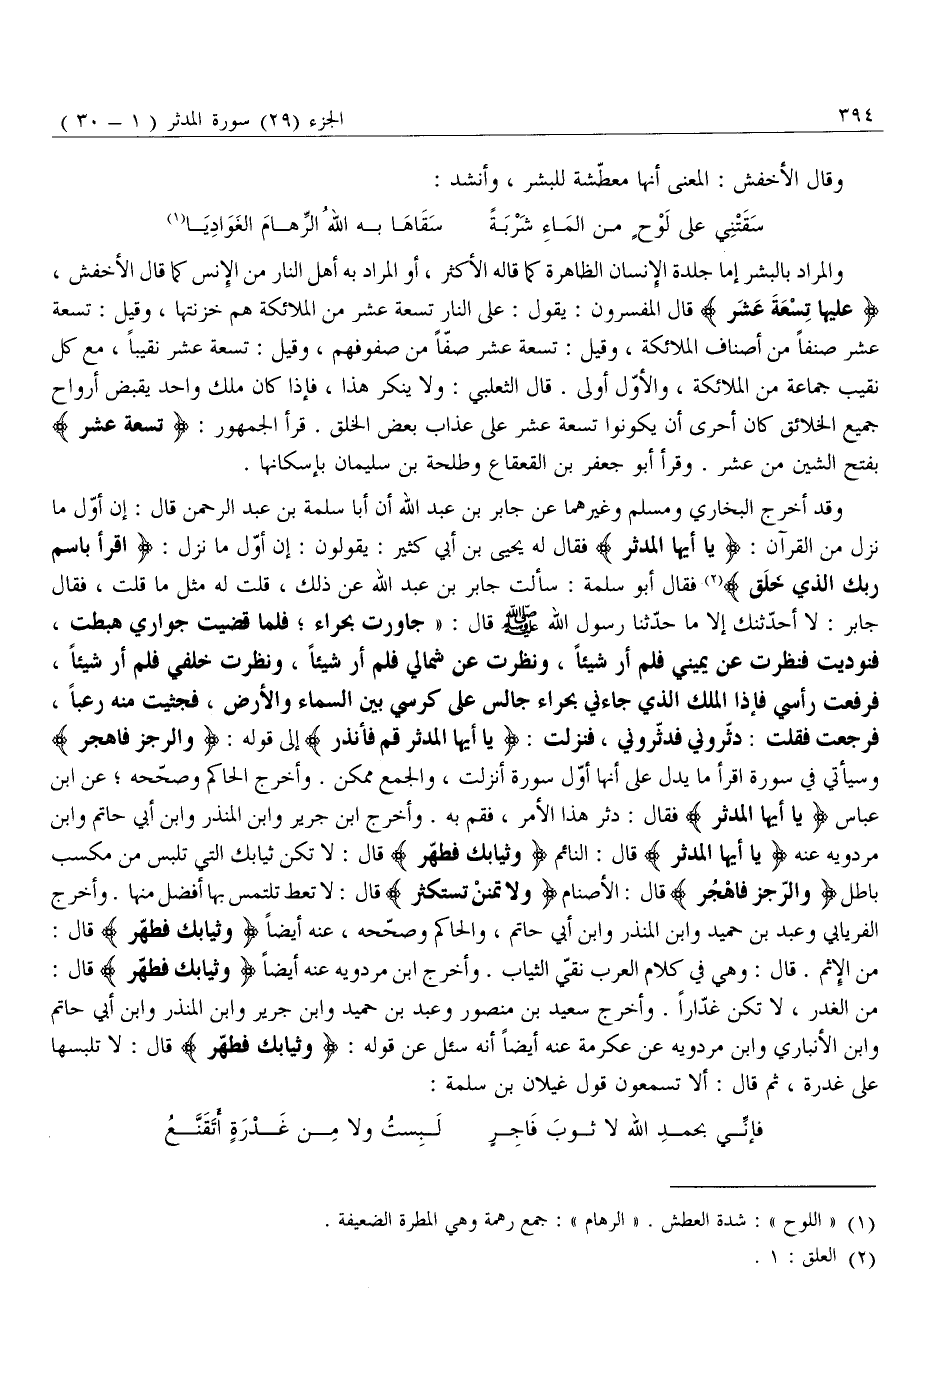 ٣٩٤ الجزء (٢٩) سورة المدثر ( ١ – ٣٠ )
وقال الأخفش : المعنى أنها معطّشة للبشر ، وأنشد :
سَقَتْنِي على لَوْحٍ من المَاءِ شَرْبَةً سَقَاهَا به اللهُ الرِّهامَ الغَوَادِيَا(١)
والمراد بالبشر إما جلدة الإنسان الظاهرة كما قاله الأكثر ، أو المراد به أهل النار من الإنس كما قال الأخفش ،
﴿ عليها تِسْعَةَ عَشَر ﴾ قال المفسرون : يقول : على النار تسعة عشر من الملائكة هم خزنتها ، وقيل : تسعة
عشر صنفاً من أصناف الملائكة ، وقيل : تسعة عشر صفّاً من صفوفهم ، وقيل : تسعة عشر نقيباً ، مع كل
نقيب جماعة من الملائكة ، والأوّل أولى . قال الثعلبي : ولا ينكر هذا ، فإذا كان ملك واحد يقبض أرواح
جميع الخلائق كان أحرى أن يكونوا تسعة عشر على عذاب بعض الخلق . قرأ الجمهور : ﴿ تسعة عشر ﴾
بفتح الشين من عشر . وقرأ أبو جعفر بن القعقاع وطلحة بن سليمان بإسكانها .
وقد أخرج البخاري ومسلم وغيرهما عن جابر بن عبد الله أن أبا سلمة بن عبد الرحمن قال : إن أوّل ما
نزل من القرآن : ﴿ يا أيها المدثر ﴾ فقال له يحيى بن أبي كثير : يقولون : إن أوّل ما نزل : ﴿ اقرأ باسم
ربك الذي خَلَق ﴾(٢) فقال أبو سلمة : سألت جابر بن عبد الله عن ذلك ، قلت له مثل ما قلت ، فقال
جابر : لا أحدّثنك إلا ما حدّثنا رسول الله ﷺ قال : « جاورت بحراء ؛ فلما قضيت جواري هبطت ،
فنوديت فنظرت عن يميني فلم أر شيئاً ، ونظرت عن شمالي فلم أر شيئاً ، ونظرت خلفي فلم أر شيئاً ،
فرفعت رأسي فإذا الملك الذي جاءني بحراء جالس على كرسي بين السماء والأرض ، فجثيت منه رعباً ،
فرجعت فقلت : دثّروني فدثّروني ، فنزلت : ﴿ يا أيها المدثر قم فأنذر ﴾ إلى قوله : ﴿ والرجز فاهجر ﴾
وسيأتي في سورة اقرأ ما يدل على أنها أوّل سورة أنزلت ، والجمع ممكن . وأخرج الحاكم وصحّحه ؛ عن ابن
عباس ﴿ يا أيها المدثر ﴾ فقال : دثر هذا الأمر ، فقم به . وأخرج ابن جرير وابن المنذر وابن أبي حاتم وابن
مردويه عنه ﴿ يا أيها المدثر ﴾ قال : النائم ﴿ وثيابك فطهّر ﴾ قال : لا تكن ثيابك التي تلبس من مكسب
باطل ﴿ والرّجز فاهْجُر ﴾ قال : الأصنام ﴿ ولا تمننْ تستكثر ﴾ قال : لا تعط تلتمس بها أفضل منها . وأخرج
الفريابي وعبد بن حميد وابن المنذر وابن أبي حاتم ، والحاكم وصحّحه ، عنه أيضاً ﴿ وثيابك فطهّر ﴾ قال :
من الإثم . قال : وهي في كلام العرب نقيّ الثياب . وأخرج ابن مردويه عنه أيضاً ﴿ وثيابك فطهّر ﴾ قال :
من الغدر ، لا تكن غدّاراً . وأخرج سعيد بن منصور وعبد بن حميد وابن جرير وابن المنذر وابن أبي حاتم
وابن الأنباري وابن مردويه عن عكرمة عنه أيضاً أنه سئل عن قوله : ﴿ وثيابك فطهّر ﴾ قال : لا تلبسها
على غدرة ، ثم قال : ألا تسمعون قول غيلان بن سلمة :
فإنِّي بحمدِ الله لا ثوبَ فَاجِرٍ لَبِستُ ولا مِن غَدْرَةٍ أَتَقَنَّعُ
(١) « اللوح » : شدة العطش . « الرهام » : جمع رهمة وهي المطرة الضعيفة .
(٢) العلق : ١ .